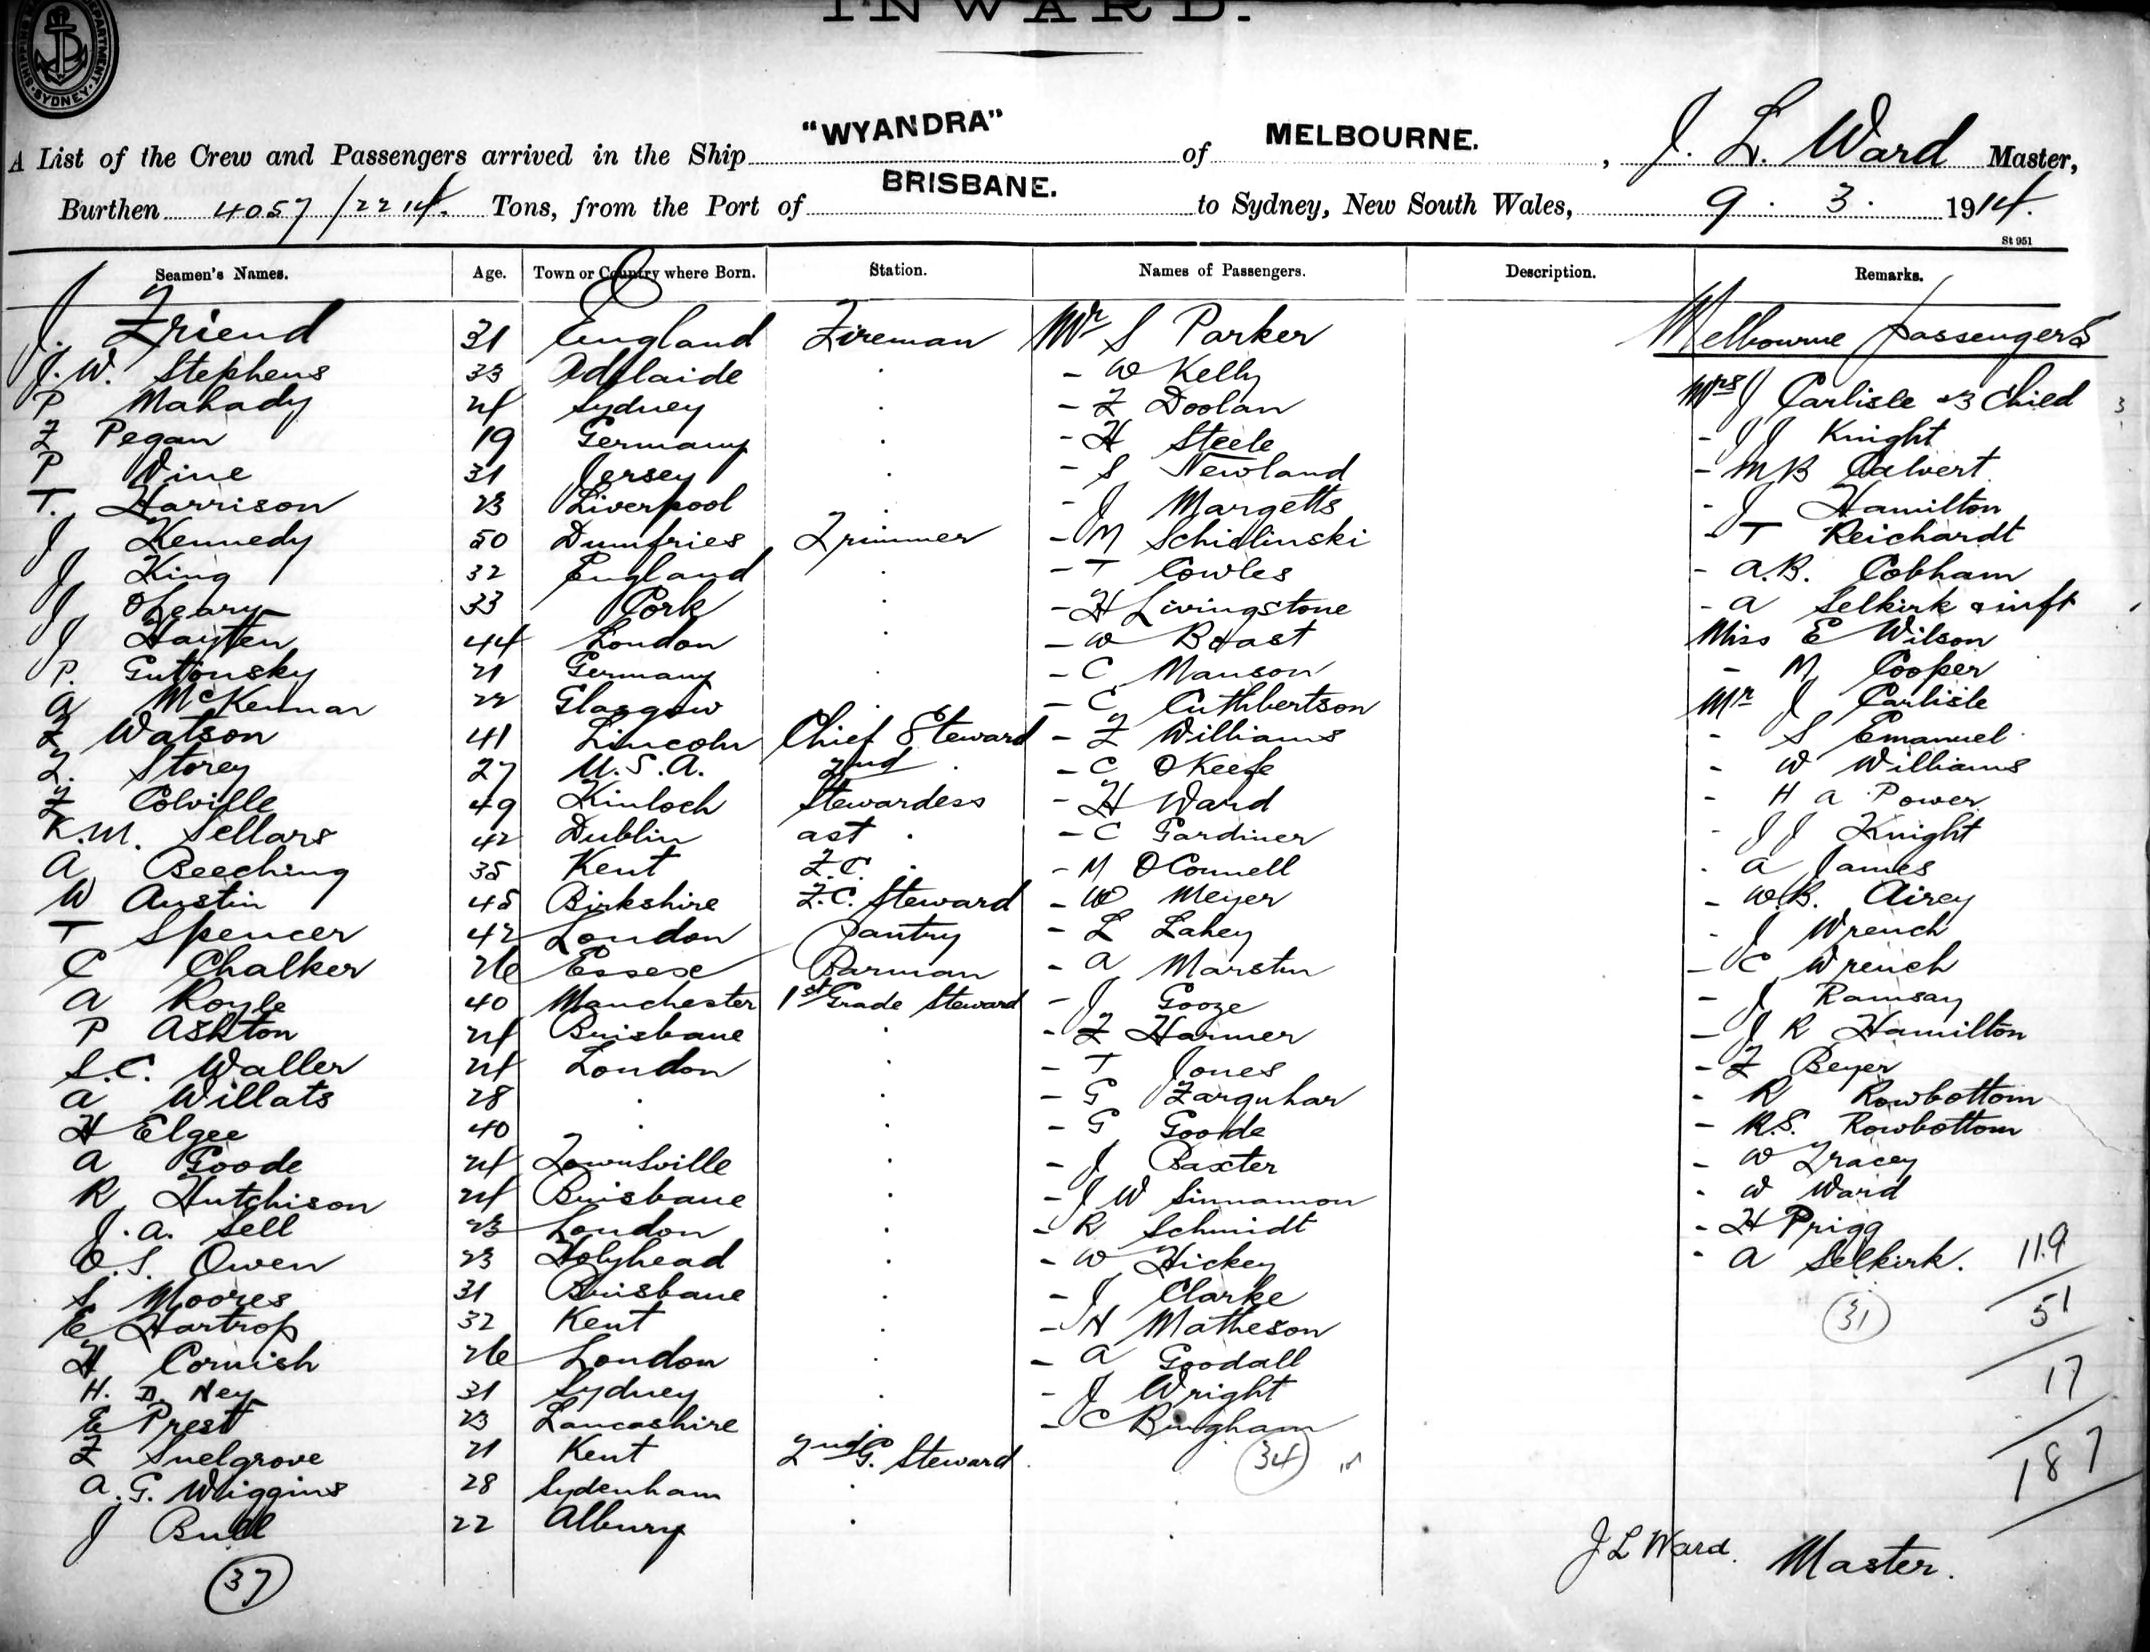 INWARD.
SHIPPING DEPARTMENT SYDNEY
A List of the Crew and Passengers arrived in the Ship "WYANDRA" of MELBOURNE. , J. L. Ward Master,
Burthen 4057/2214. Tons, from the Port of BRISBANE. to Sydney, New South Wales, 9 . 3 . 1914.
St 951
Seamen's Names. Age. Town or Country where Born. Station. Names of Passengers. Description. Remarks.
J. Friend 31 England Fireman Mr S Parker Melbourne passengers
J. W. Stephens 33 Adelaide - W Kelly Mrs J Carlisle & 3 Child 3
P Mahady 24 Sydney - F Doolan - J J Knight
F Pegan 19 Germany - H Steele - M B Calvert
P Vine 31 Jersey - S Newland - J Hamilton
T. Harrison 23 Liverpool - J Margetts - T Reichardt
J Kennedy 50 Dumfries Trimmer - M Schidlinski - A.B. Cobham
J King 32 England - T Cowles - A Selkirk & inft
J O'Leary 33 Cork - H Livingstone Miss E Wilson
J Hayten 44 London - W Boast - M Cooper
P. Guttonsky 21 Germany - C Manson Mr J Carlisle
A McKennar 22 Glasgow - C Cuthbertson - S Emanuel
F Watson 41 Lincoln Chief Steward - F Williams - W Williams
F. Storey 27 U.S.A. 2nd - C OKeefe - H A Power
F Colville 49 Kinloch Stewardess - H Ward - J J Knight
K.M. Sellars 42 Dublin ast - C Gardiner - A James
A Beeching 35 Kent F.C. - M OConnell - W.B. Airey
W Austin 45 Birkshire F.C. Steward - W Meyer - J Wrench
T Spencer 42 London Pantry - L Lahey - C Wrench
C Chalker 26 Essex Barman - A Marstin - J Ramsay
A Royle 40 Manchester 1st Grade Steward - J Gooze - J R Hamilton
P Ashton 24 Brisbane - F Harmer - F Beyer
S.C. Waller 24 London - T Jones - R Rowbottom
A Willats 28 - G Farquhar - R.S. Rowbottom
H Elgee 40 - G Goode - W Tracey
A Goode 24 Townsville - J Baxter - W Ward
R Hutchison 24 Brisbane - J W Sinnamon - H Prigg
J. A. Sell 23 London - R Schmidt - A Selkirk. 119
O.S. Owen 23 Holyhead - W Hickey
S Moores 31 Brisbane - J Clarke (31) 51
E Hartrop 32 Kent - N Matheson
H Cornish 26 London - A Goodall 17
H. D. Ney 31 Sydney - J Wright
E Prest 23 Lancashire - C Bingham
F Snelgrove 21 Kent 2nd G. Steward (34) 187
A. G. Wiggins 28 Sydenham
J Bull 22 Albury
J L Ward. Master.
(37)